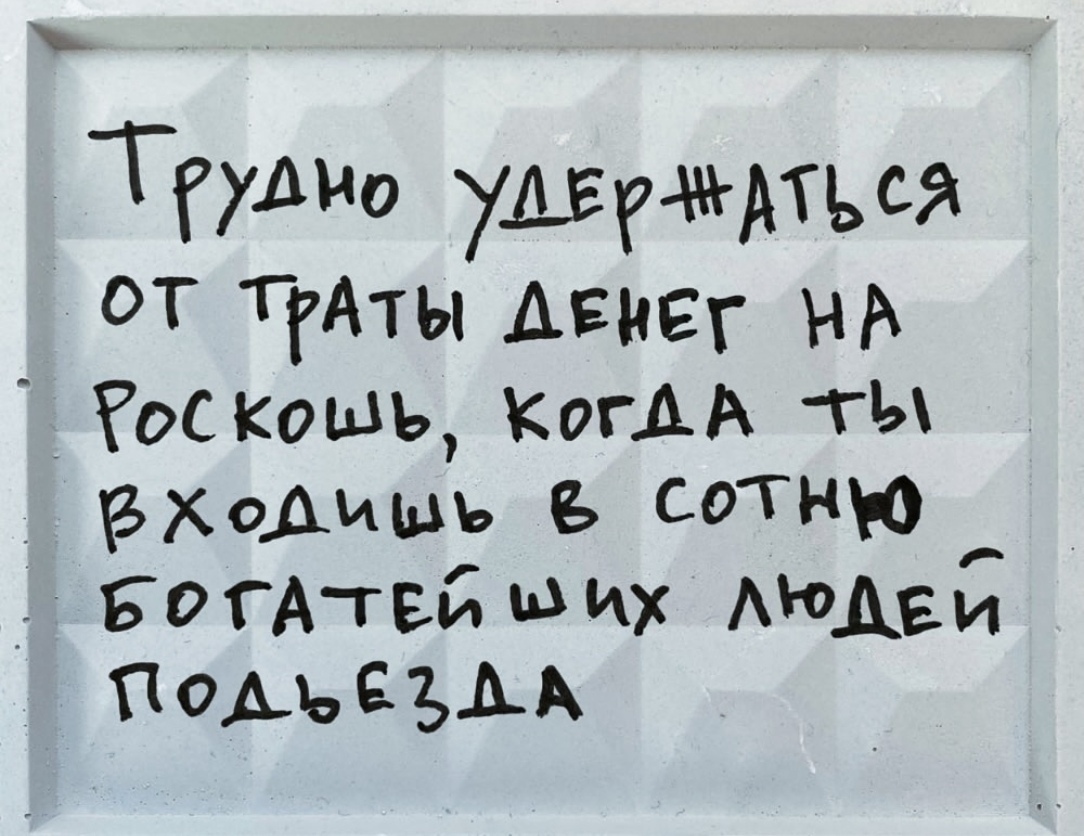 Трудно удержаться
от траты денег на
роскошь, когда ты
входишь в сотню
богатейших людей
подьезда